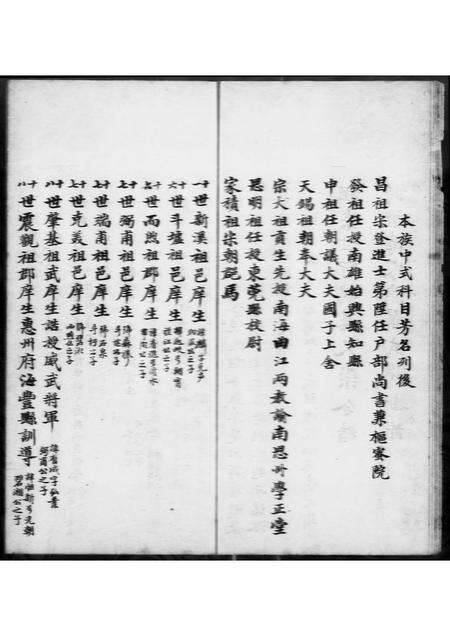 本族中式科目芳名列後
昌祖宗登進士第陞任戶部尚書兼樞密院
發祖任授南雄始興縣知縣
申祖任朝議大夫國子上舍
天錫祖朝奉大夫
宗大祖貢生先授南海曲江兩教諭南恩州學正堂
思明祖任授東莞縣校尉
家積祖宗朝説馬
十一世新溪祖邑庠生
十六世斗墟祖邑庠生
十七世雨煦祖郡庠生
十七世弼甫祖邑庠生
十七世端甫祖邑庠生
十七世克義祖邑庠生
十八世肇基祖武庠生誥授威武將軍
十八世震觀祖郡庠生惠州府海豐縣訓導 碧湘公之子